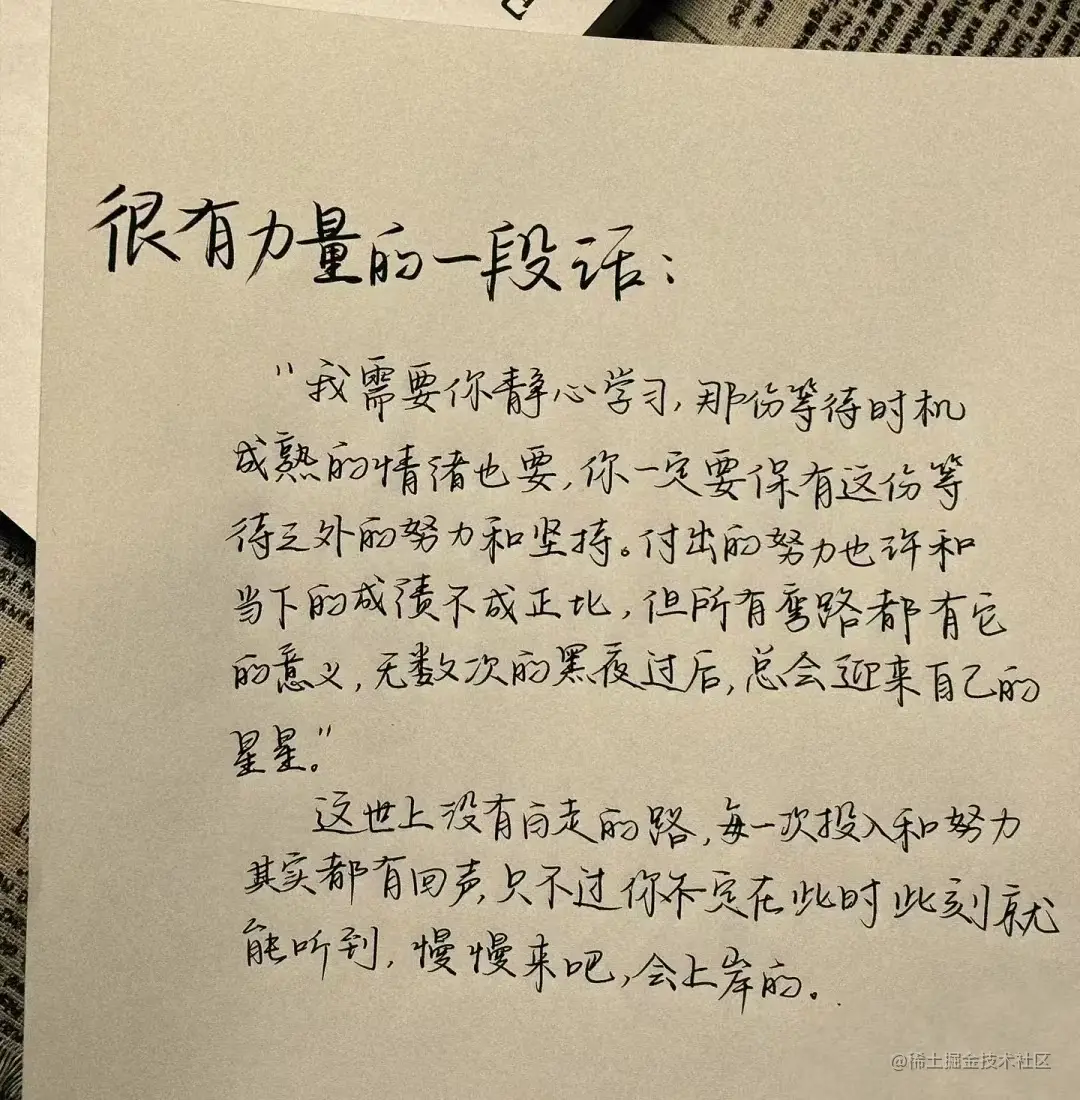 很有力量的一段话：
"我需要你静心学习，那份等待时机
成熟的情绪也要，你一定要保有这份等
待之外的努力和坚持。付出的努力也许和
当下的成绩不成正比，但所有弯路都有它
的意义，无数次的黑夜过后，总会迎来自己的
星星。"
这世上没有白走的路，每一次投入和努力
其实都有回声，只不过你不定在此时此刻就
能听到，慢慢来吧，会上岸的。
@稀土掘金技术社区